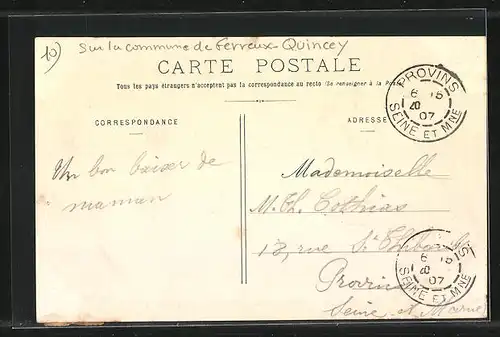 10)
Sur la commune de Ferreux-Quincey
CARTE POSTALE
Tous les pays étrangers n'acceptent pas la correspondance au recto (Se renseigner à la Poste)
CORRESPONDANCE
ADRESSE
PROVINS
6 15
20
07
SEINE ET MNE
Un bon baiser de
maman
Mademoiselle
M. Th. Cothias
18, rue St Thibault
Provins
Seine et Marne
6 15
20
07
SEINE ET MNE